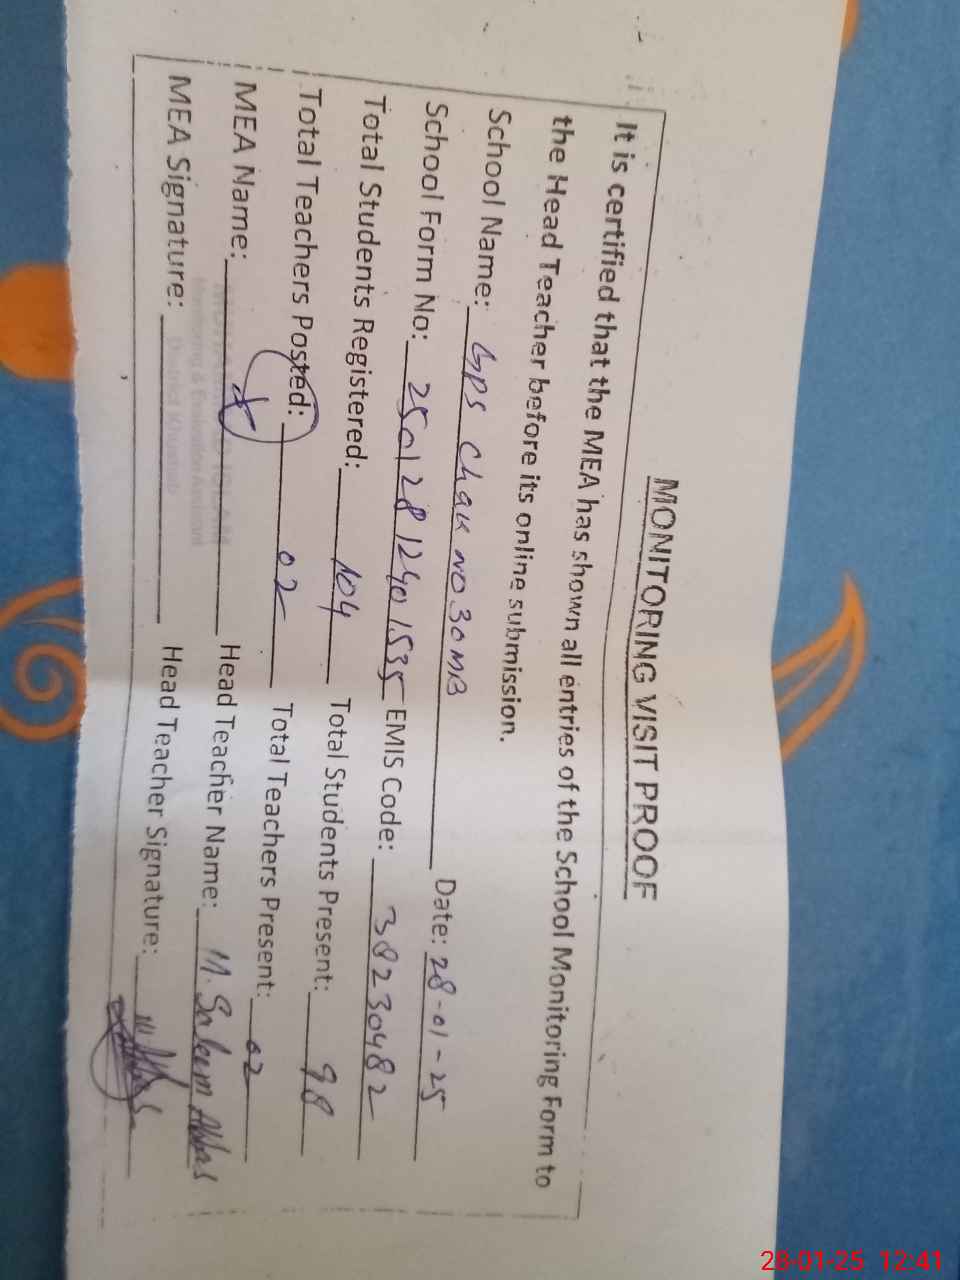 MONITORING VISIT PROOF
It is certified that the MEA has shown all entries of the School Monitoring Form to
the Head Teacher before its online submission.
School Name: GPS Chak NO 30 MB Date: 28-01-25
School Form No: 25012812401535 EMIS Code: 38230482
Total Students Registered: 104 Total Students Present: 98
Total Teachers Posted: 02 Total Teachers Present: 02
MEA Name: Head Teacher Name: M. Saleem Abbas
MEA Signature: Head Teacher Signature:
Monitoring & Evaluation Assistant
District Khushab
28-01-25 12:41